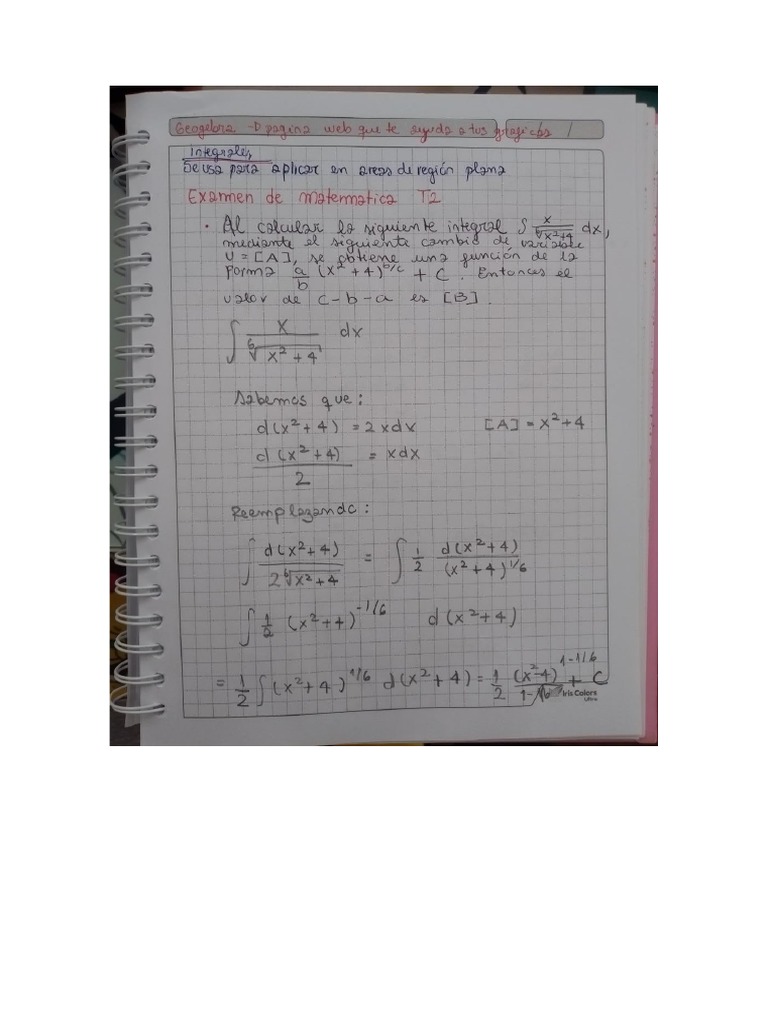 Geogebra → pagina web que te ayuda a tus graficas /
Integrales,
Se usa para aplicar en areas de región plana
Examen de matematica T2
• Al calcular la siguiente integral ∫ x/⁶√(x²+4) dx,
mediante el siguiente cambio de variable
U = [A], se obtiene una función de la
forma a/b (x²+4)^(b/c) + C. Entonces el
valor de c-b-a es [B].
∫ x/⁶√(x²+4) dx
Sabemos que:
d(x²+4) = 2xdx [A] = x²+4
d(x²+4)/2 = xdx
Reemplazando:
∫ d(x²+4)/(2⁶√(x²+4)) = ∫ 1/2 d(x²+4)/(x²+4)^(1/6)
∫ 1/2 (x²+4)^(-1/6) d(x²+4)
= 1/2 ∫ (x²+4)^(1/6) d(x²+4) = 1/2 (x²-4)^(1-1/6)/(1-1/6) + C
Iris Colors